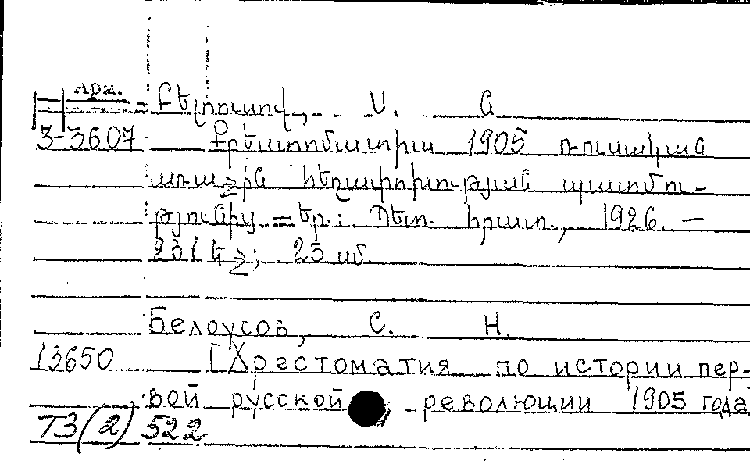 Арм.
Բելոուսով, Ս. Ն
3-3607 Քրեստոմատիա 1905 ռուսական
առաջին հեղափոխության պատմու-
թյունից — Եր.: Պետ. հրատ., 1926. —
231 եջ; 23 սմ.
Белоусов, С. Н.
13650 [Хрестоматия по истории пер-
вой русской революции 1905 года
Т3(2)522